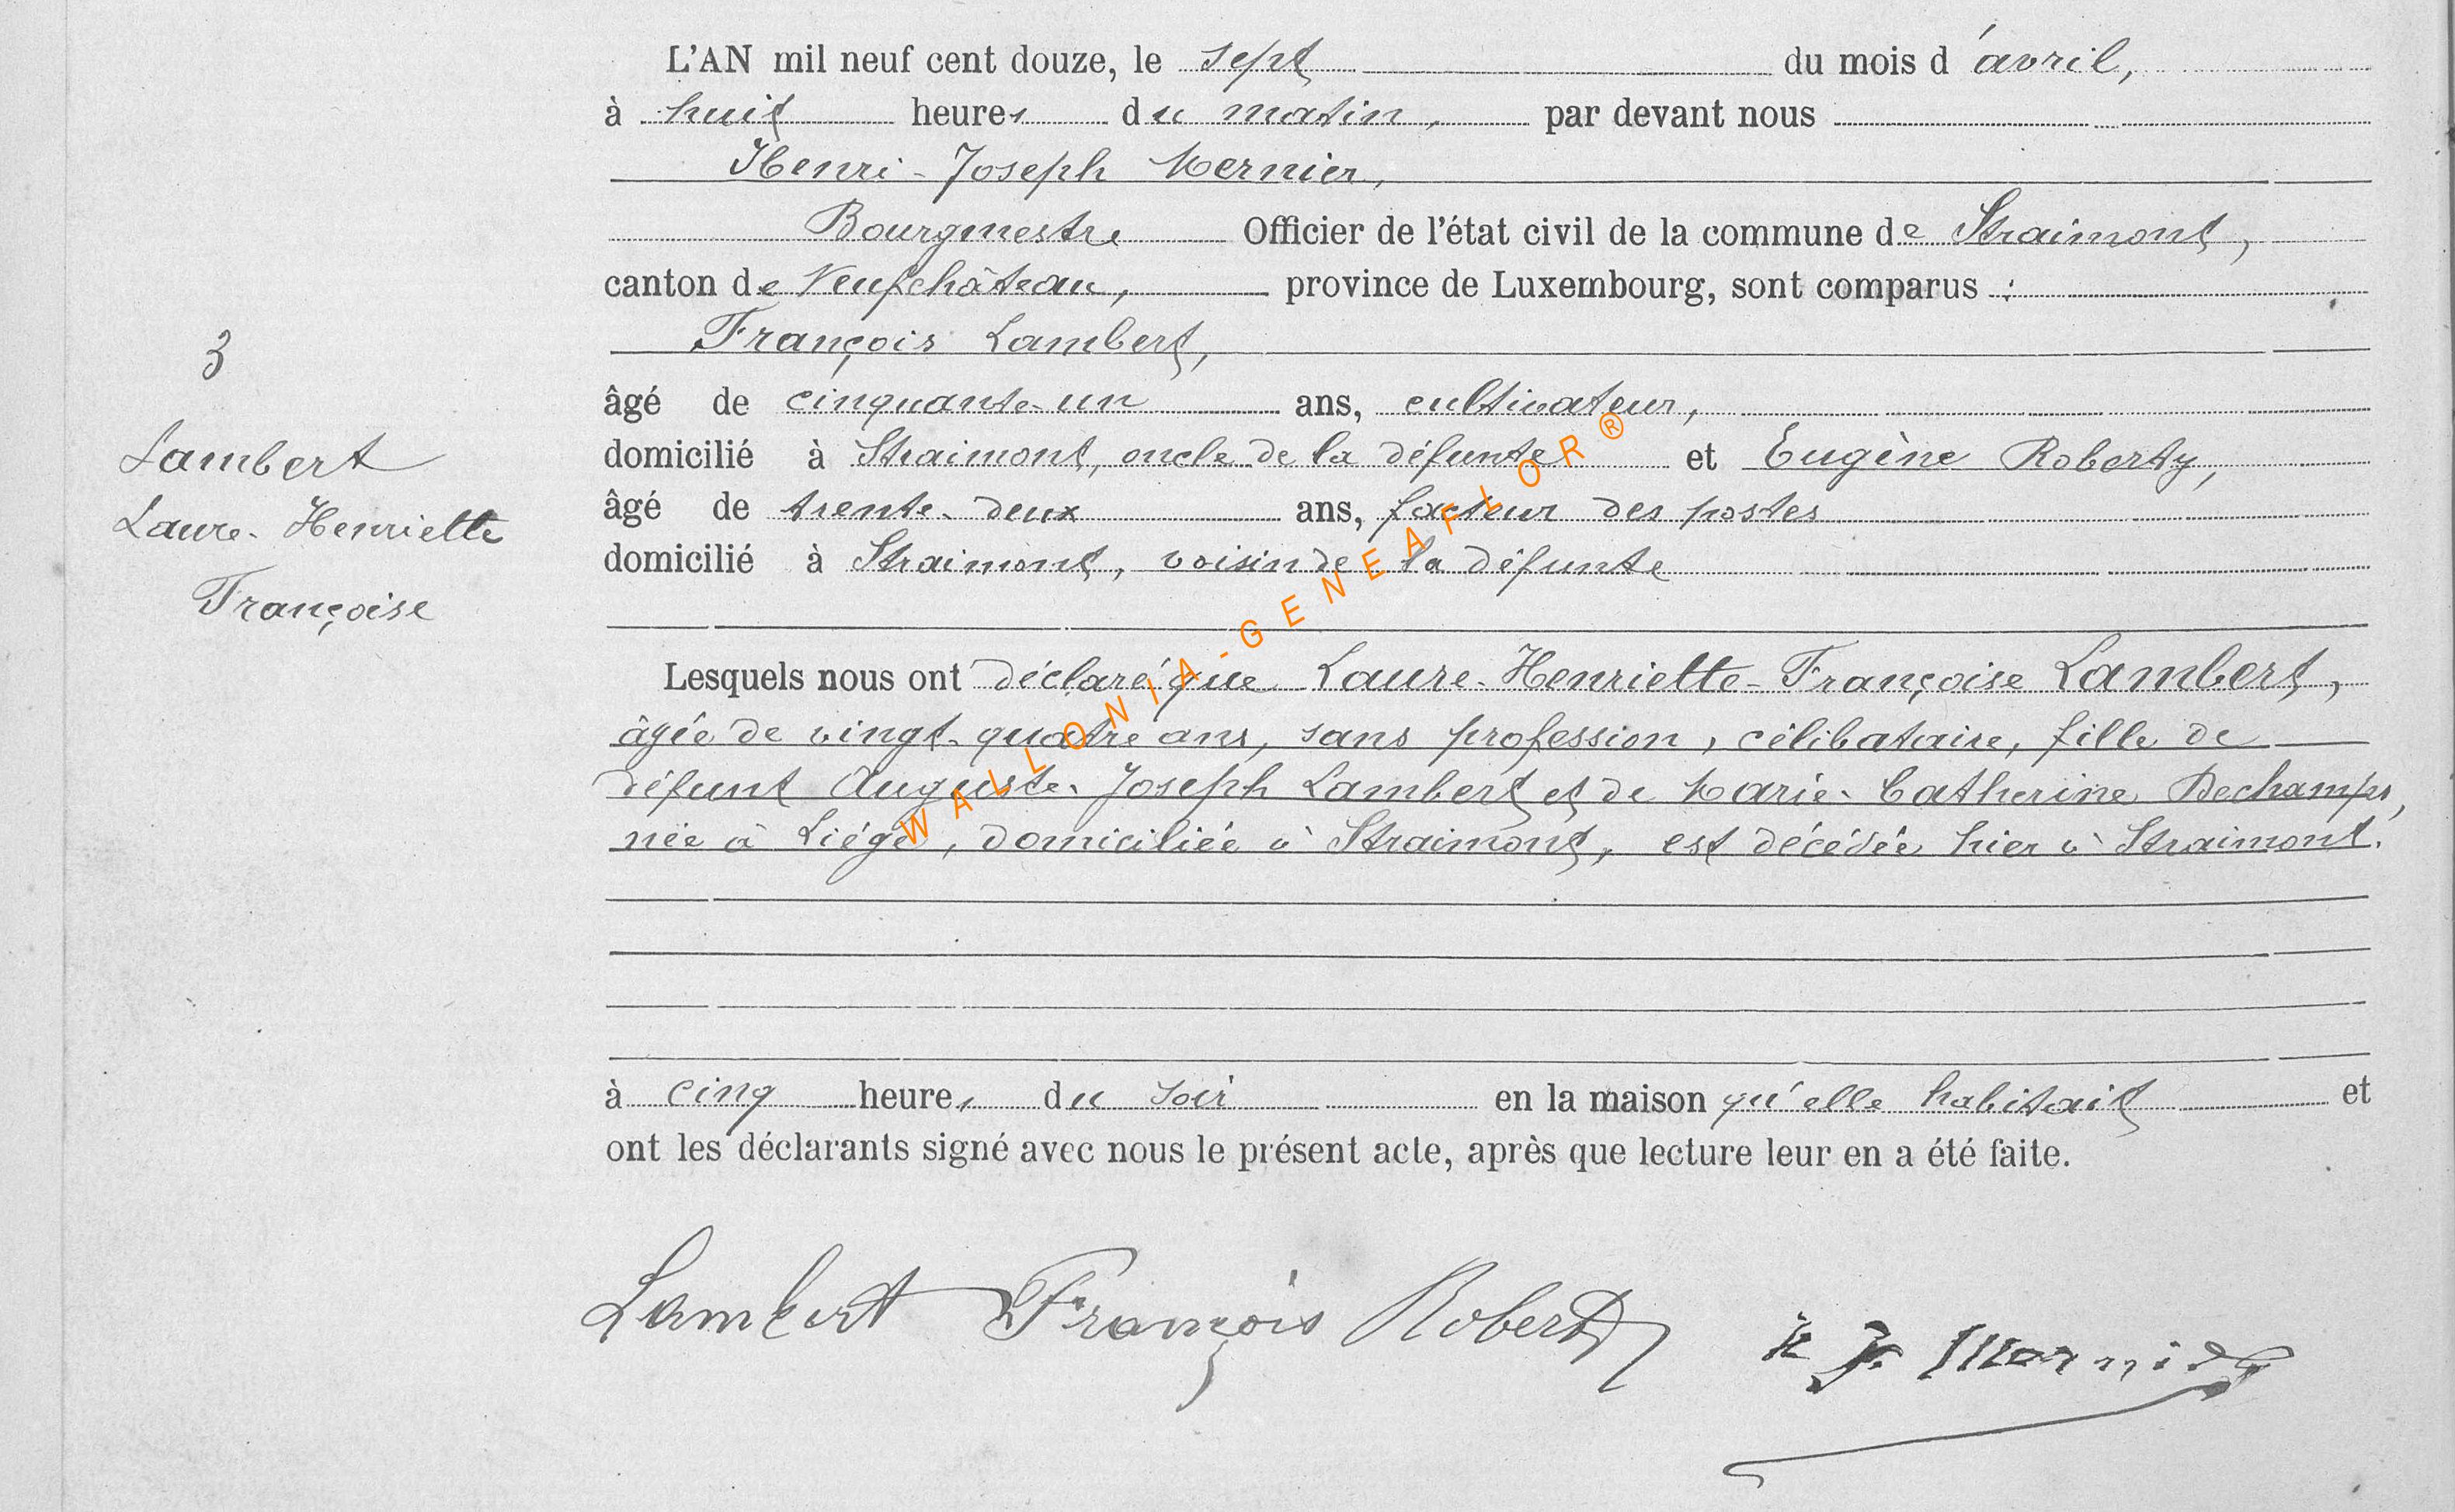 L'AN mil neuf cent douze, le sept du mois d'avril,
à huit heures du matin, par devant nous
Henri-Joseph Mernier,
Bourgmestre Officier de l'état civil de la commune de Straimont,
canton de Neufchâteau, province de Luxembourg, sont comparus :
François Lambert,
3
âgé de cinquante-un ans, cultivateur,
Lambert
domicilié à Straimont, oncle de la défunte et Eugène Roberty,
Laure-Henriette
âgé de trente-deux ans, facteur des postes
domicilié à Straimont, voisin de la défunte
Françoise
Lesquels nous ont déclaré que Laure-Henriette-Françoise Lambert,
âgée de vingt-quatre ans, sans profession, célibataire, fille de
défunt Auguste-Joseph Lambert et de Marie-Catherine Dechamps,
née à Liége, domiciliée à Straimont, est décédée hier à Straimont.
à cinq heures du soir en la maison qu'elle habitait et
ont les déclarants signé avec nous le présent acte, après que lecture leur en a été faite.
Lambert François Roberty H J. Mernier
WALLONIA-GENEAFLOR®